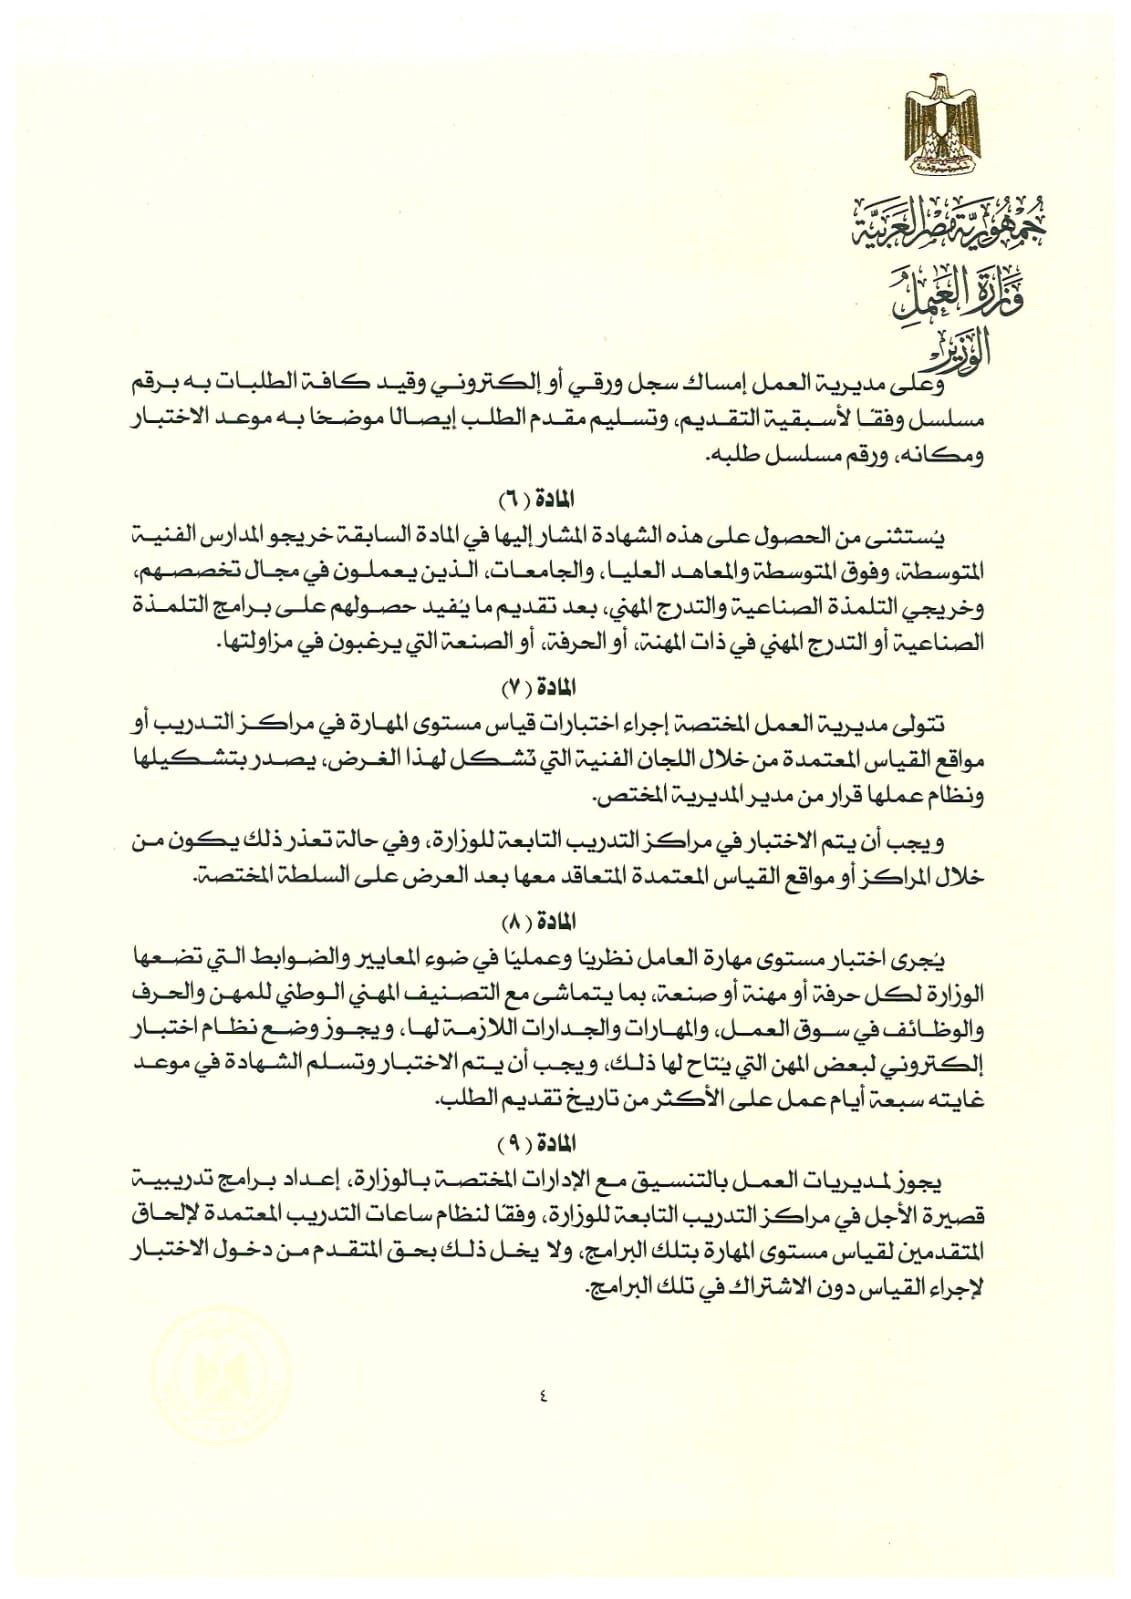 جمهورية مصر العربية
وزارة العمل
الوزير
وعلى مديرية العمل إمساك سجل ورقي أو إلكتروني وقيد كافة الطلبات به برقم
مسلسل وفقا لأسبقية التقديم، وتسليم مقدم الطلب إيصالا موضحا به موعد الاختبار
ومكانه، ورقم مسلسل طلبه.
المادة (٦)
يُستثنى من الحصول على هذه الشهادة المشار إليها في المادة السابقة خريجو المدارس الفنية
المتوسطة، وفوق المتوسطة والمعاهد العليا، والجامعات، الذين يعملون في مجال تخصصهم،
وخريجي التلمذة الصناعية والتدرج المهني، بعد تقديم ما يُفيد حصولهم على برامج التلمذة
الصناعية أو التدرج المهني في ذات المهنة، أو الحرفة، أو الصنعة التي يرغبون في مزاولتها.
المادة (٧)
تتولى مديرية العمل المختصة إجراء اختبارات قياس مستوى المهارة في مراكز التدريب أو
مواقع القياس المعتمدة من خلال اللجان الفنية التي تُشكل لهذا الغرض، يصدر بتشكيلها
ونظام عملها قرار من مدير المديرية المختص.
ويجب أن يتم الاختبار في مراكز التدريب التابعة للوزارة، وفي حالة تعذر ذلك يكون من
خلال المراكز أو مواقع القياس المعتمدة المتعاقد معها بعد العرض على السلطة المختصة.
المادة (٨)
يُجرى اختبار مستوى مهارة العامل نظريًا وعمليًا في ضوء المعايير والضوابط التي تضعها
الوزارة لكل حرفة أو مهنة أو صنعة، بما يتماشى مع التصنيف المهني الوطني للمهن والحرف
والوظائف في سوق العمل، والمهارات والجدارات اللازمة لها، ويجوز وضع نظام اختبار
إلكتروني لبعض المهن التي يُتاح لها ذلك، ويجب أن يتم الاختبار وتسلم الشهادة في موعد
غايته سبعة أيام عمل على الأكثر من تاريخ تقديم الطلب.
المادة (٩)
يجوز لمديريات العمل بالتنسيق مع الإدارات المختصة بالوزارة، إعداد برامج تدريبية
قصيرة الأجل في مراكز التدريب التابعة للوزارة، وفقا لنظام ساعات التدريب المعتمدة لإلحاق
المتقدمين لقياس مستوى المهارة بتلك البرامج، ولا يخل ذلك بحق المتقدم من دخول الاختبار
لإجراء القياس دون الاشتراك في تلك البرامج.
٤